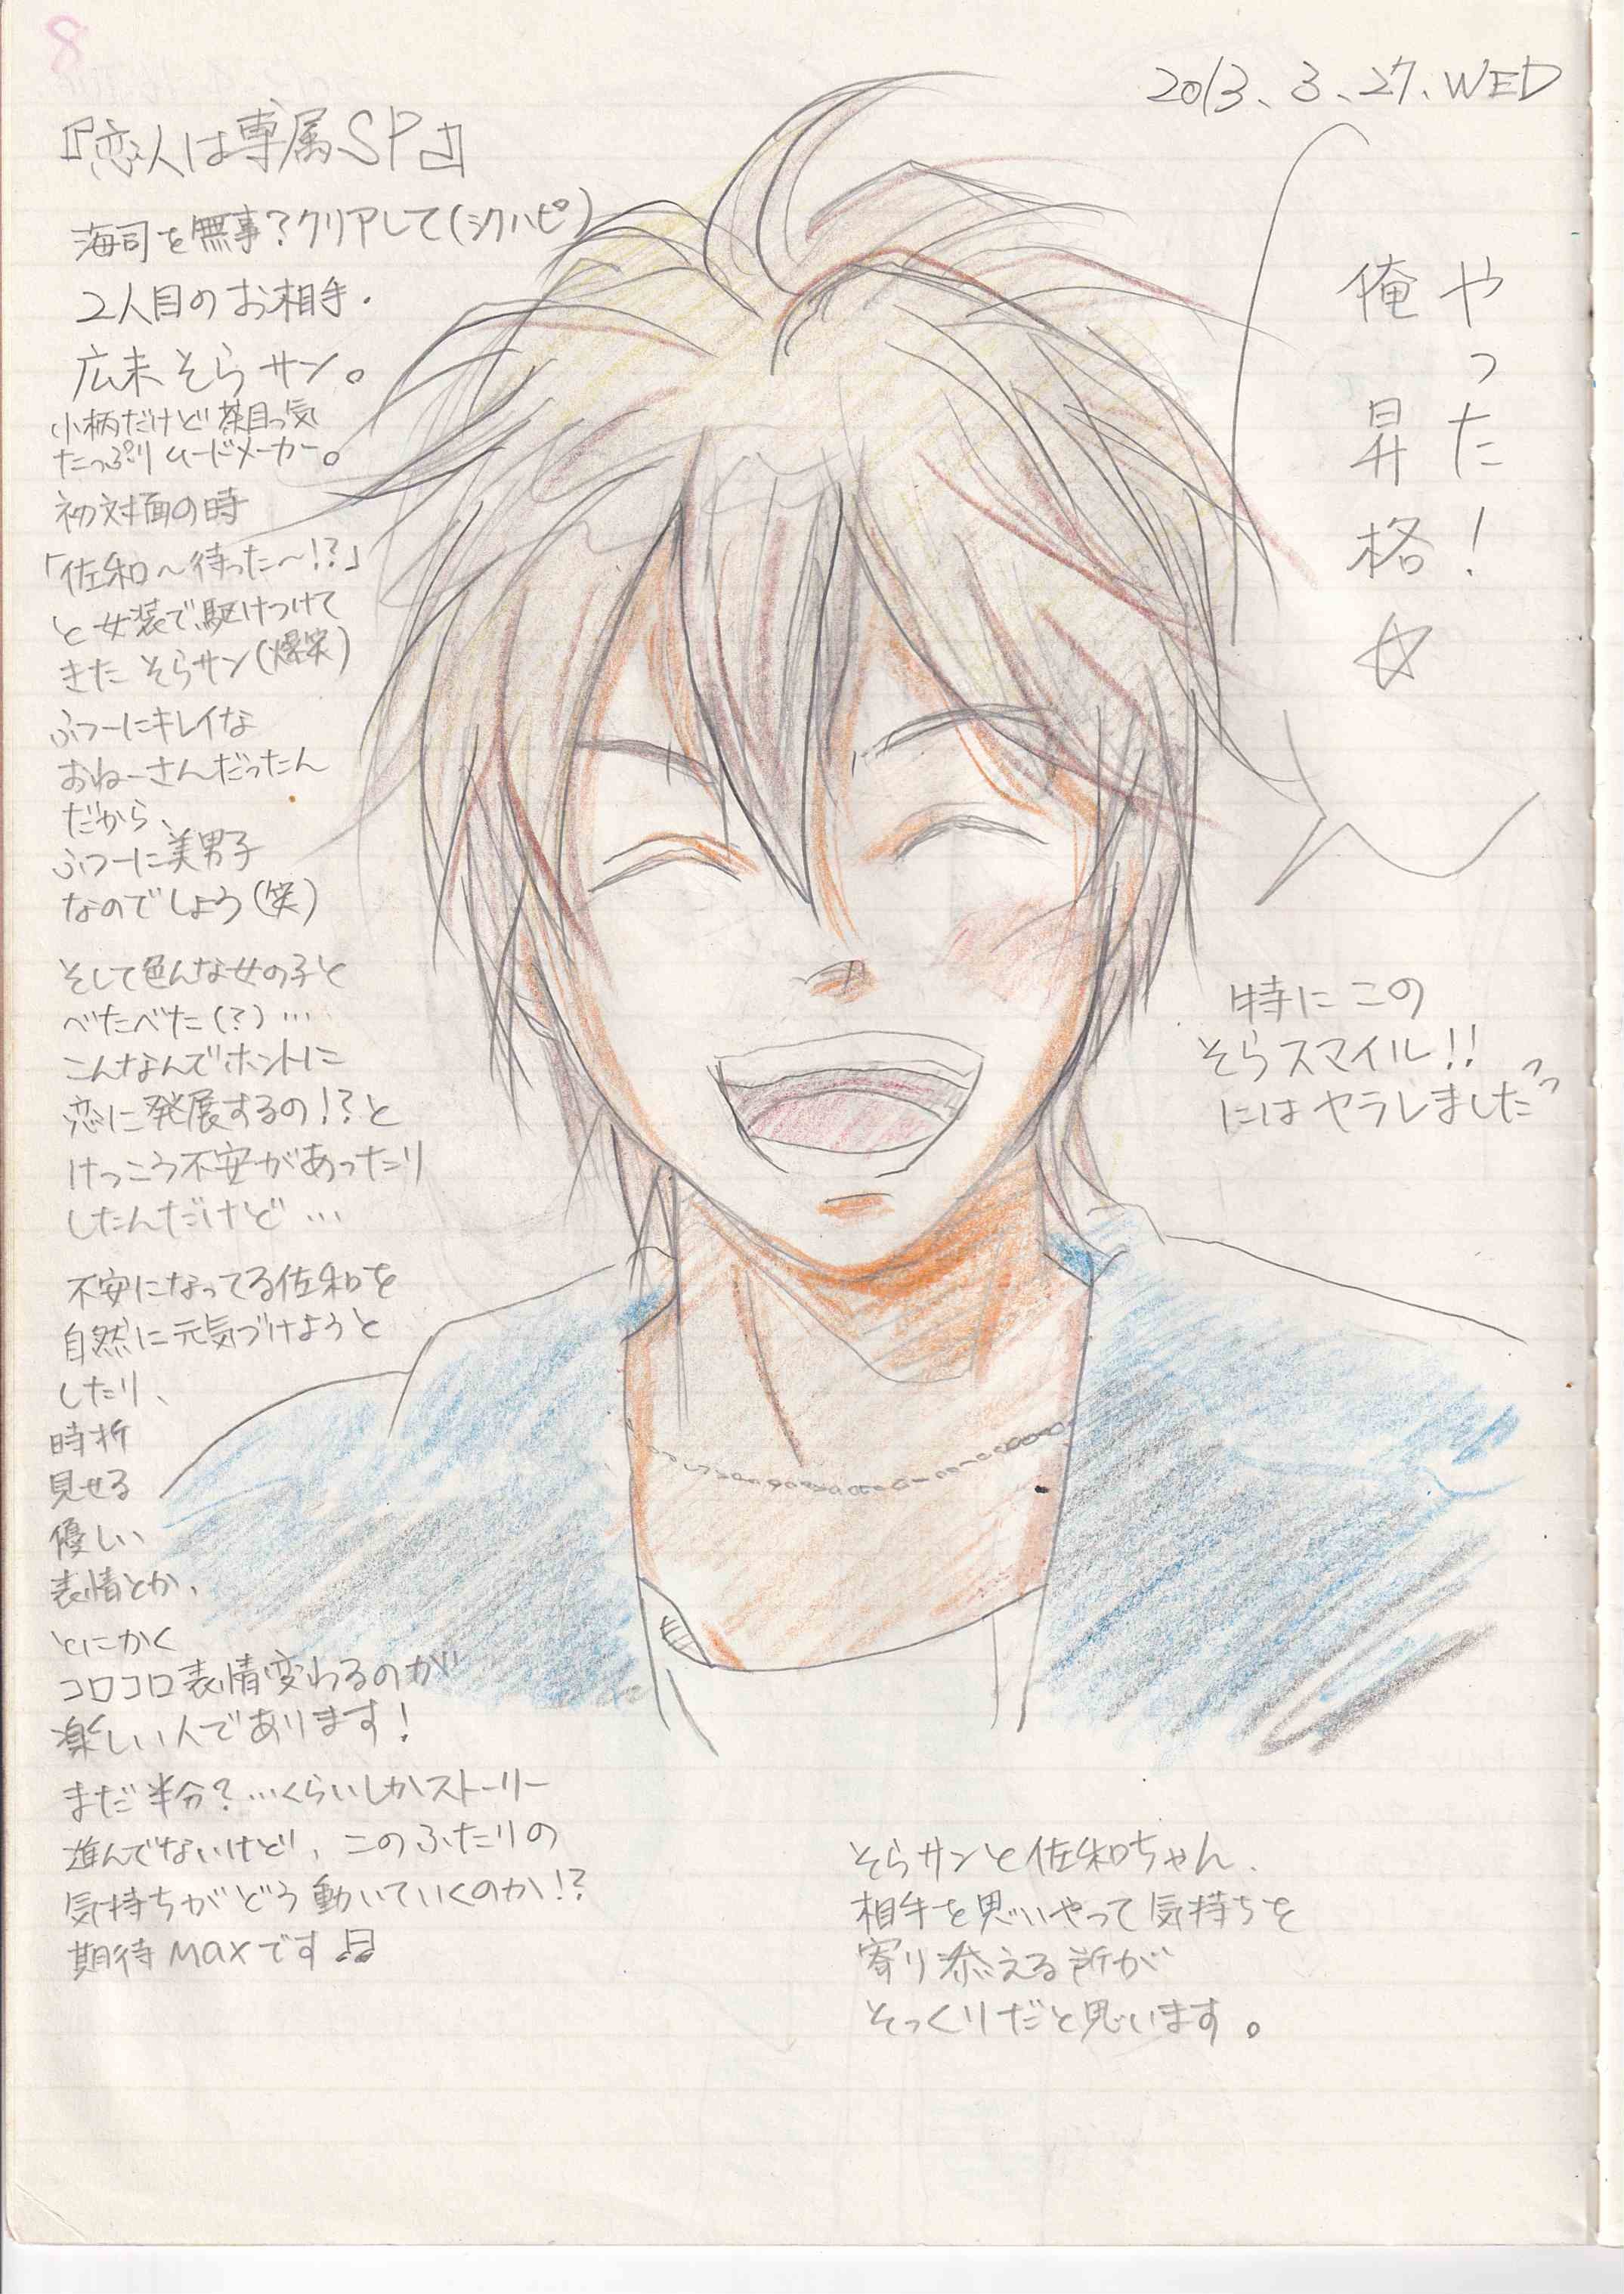 8
2013、3、27、WED
『恋人は専属SP』
海司を無事?クリアして(シクハピ)
2人目のお相手.
広末そらサン。
小柄だけど茶目っ気
たっぷりムードメーカー。
初対面の時
「佐和〜待った〜!?」
と女装で駆けつけて
きたそらサン(爆笑)
ふつーにキレイな
おねーさんだったん
だから、
ふつーに美男子
なのでしょう(笑)
そして色んな女の子と
べたべた(?)…
こんなんでホントに
恋に発展するの!?と
けっこう不安があったり
したんだけど…
不安になってる佐和を
自然に元気づけようと
したり、
時折
見せる
優しい
表情とか、
とにかく
コロコロ表情変わるのが
楽しい人であります!
まだ半分?…くらいしかストーリー
進んでないけど、このふたりの
気持ちがどう動いていくのか!?
期待MAXです♫
やった!
俺昇格☆
特にこの
そらスマイル!!
にはヤラレました
そらサンと佐和ちゃん、
相手を思いやって気持ちを
寄り添える所が
そっくりだと思います。